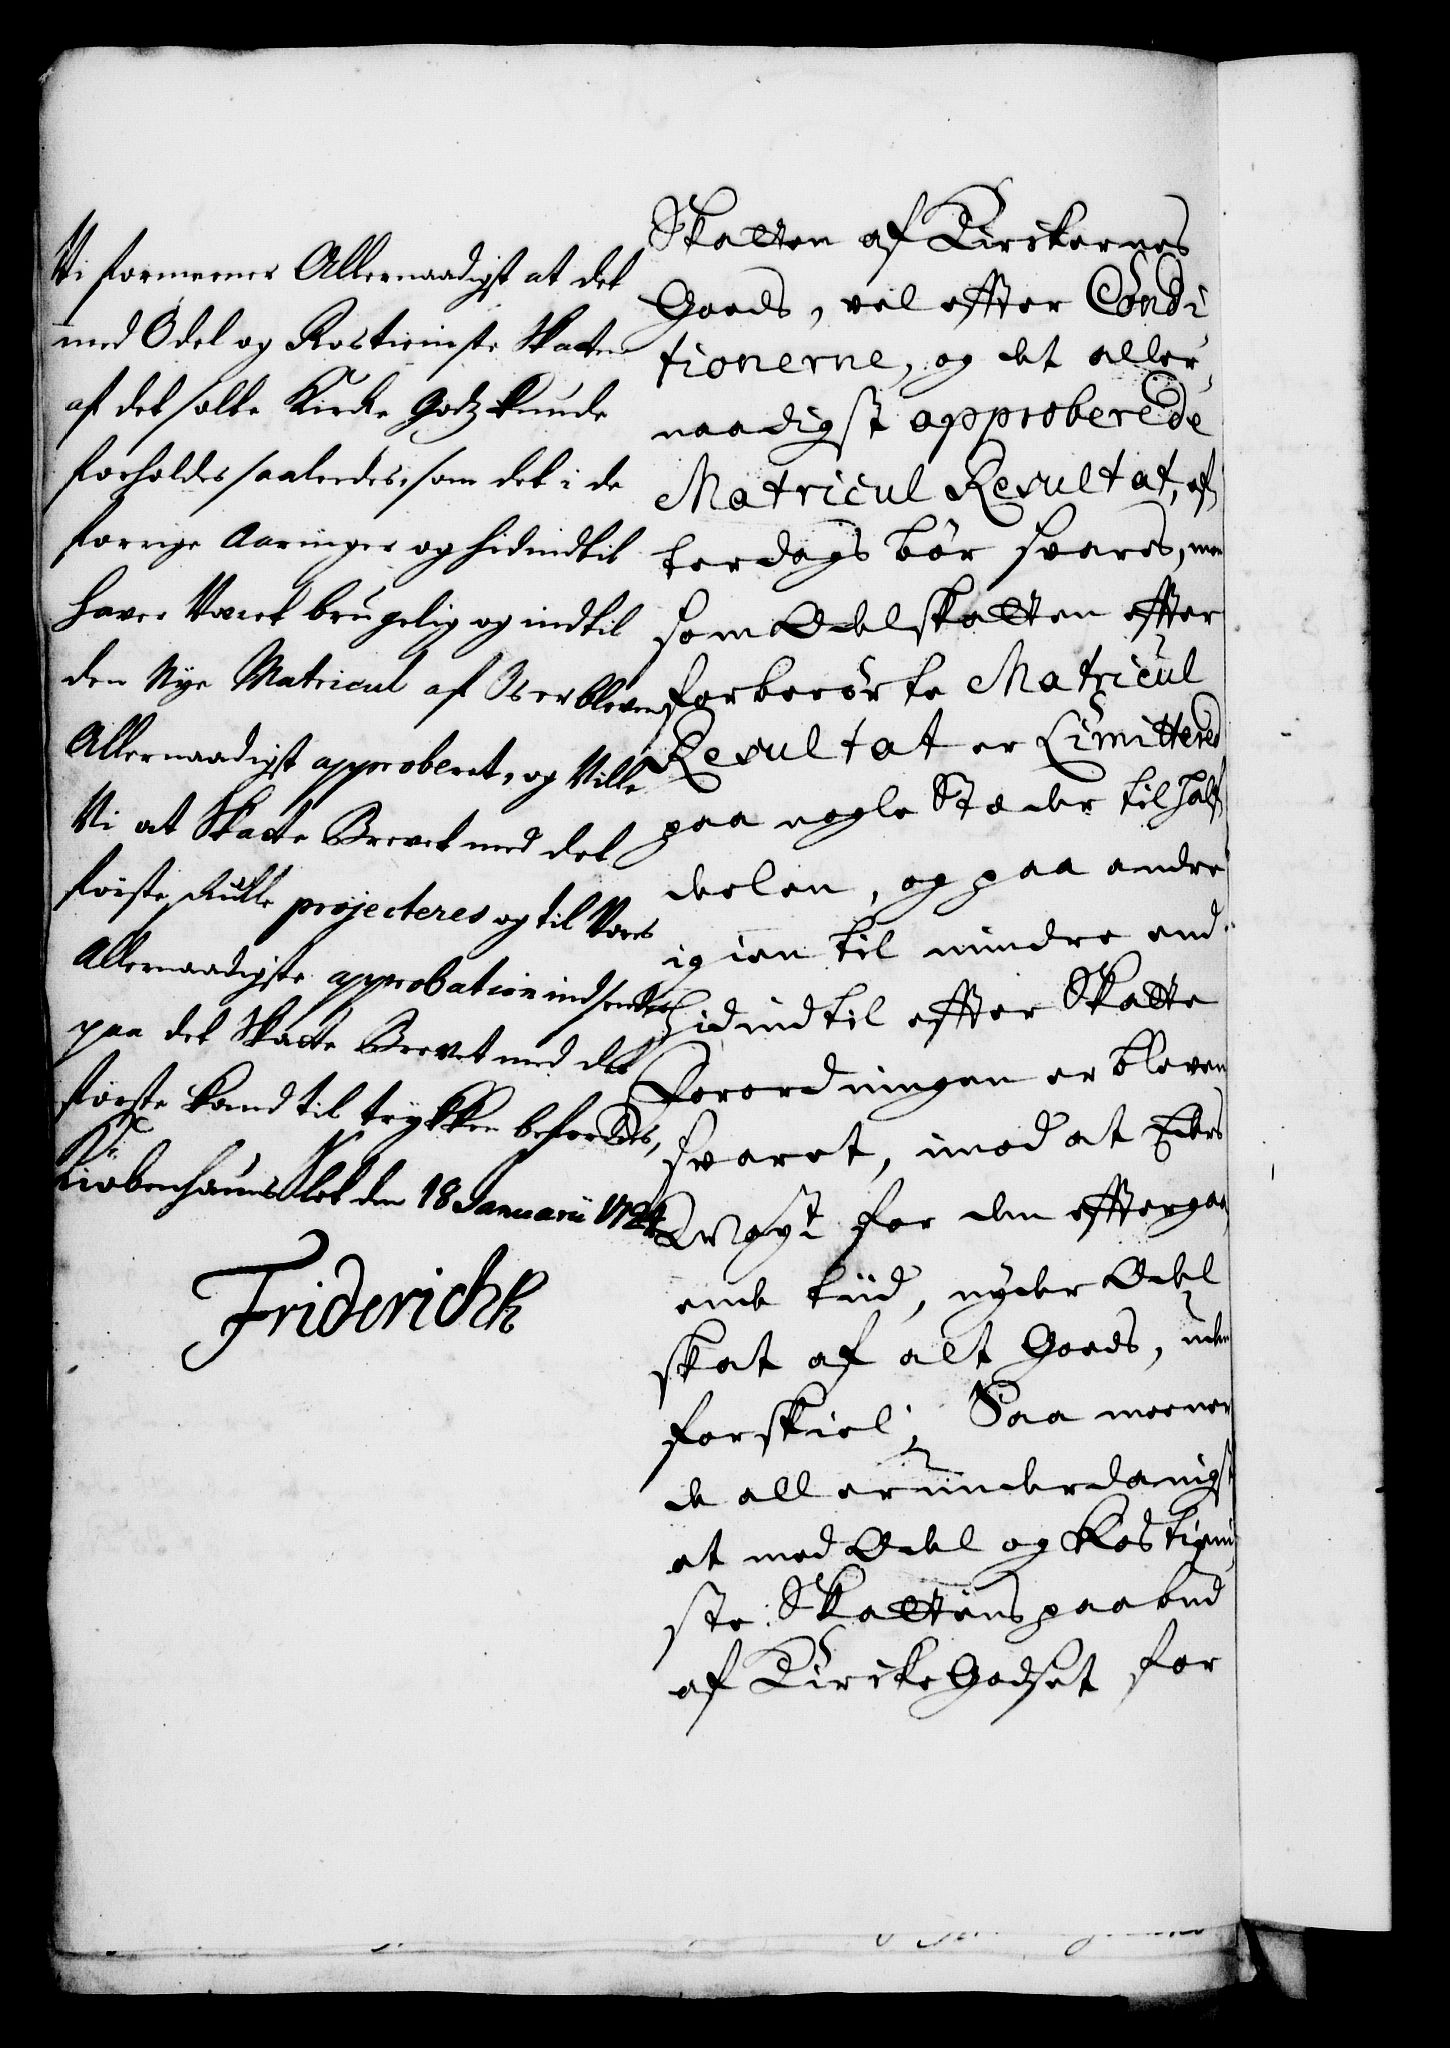 Vi formeener Allernaadigst at det
med Odel og Rostieniste Skatten
af det solte Kircke Godz kunde
forholdes saaleedes, som det i de
forrige Aaringer og hidindtil
haver Været brugelig og indtil
den Nye Matricul af Os er bleven
Allernaadigst approberet, og Ville
Vi at Skatte Brevet med det
første skulle projecteres og til Vores
Allernaadigste approbation indsendes
paa det Skatte Brevet med det
første kand til trykken befordres,
Kiøbenhauns Slot den 18 Januarii 1724
Friderich R
Skatten af Kirckernes
Goeds, vel effter Condi
tionerne, og det aller,
naadigst approberede
Matricul Resultat, ef,
terdags bør svares, men
som Odelskatten effter
forberørte Matricul
Resultat er Limitteret
paa nogle Stæder til half,
deelen, og paa andre
igien til mindre end
hidindtil effter Skatte
Forordningen er bleven
svaret, imod at Eders
Mayt for den efftergaa,
ende tiid, nyder Odel
skat af alt Goeds, uden
forskiel; Saa meener
de allerunderdanigst
at med Odel og Rostieni,
ste Skattens paabud
af Kircke Godset for